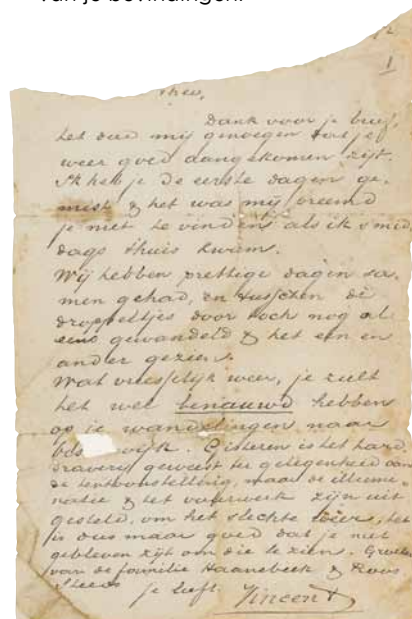 van je bevindingen.
1
Theo,
Dank voor je brief,
het deed mij genoegen dat je
weer goed aangekomen zijt.
Ik heb je de eerste dagen ge-
mist & het was mij vreemd
je niet te vinden als ik s'mid-
dags t'huis kwam.
Wij hebben prettige dagen sa-
men gehad, en tusschen de
droppeltjes door toch nog al
eens gewandeld & het een en
ander gezien.
Wat vreesselijk weer, je zult
het wel benaauwd hebben
op je wandelingen naar
wijk. Gisteren is het hard
draverij geweest ter gelegenheid van
de tentoonstelling, maar de illumi-
natie & het vuurwerk zijn uit
gesteld, om het slechte weer, het
is dus maar goed dat je niet
gebleven zijt om die te zien. Groeten
van de familie Haanebeek & Roos.
Steeds
je liefh. Vincent